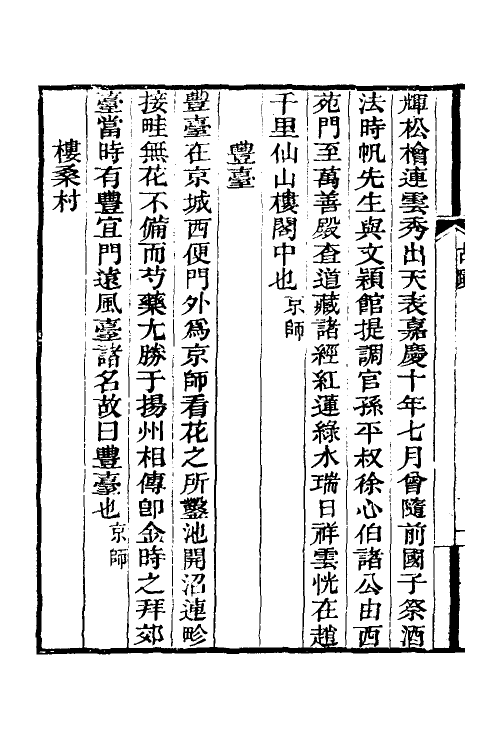 輝松檜連雲秀出天表嘉慶十年七月曾隨前國子祭酒
法時帆先生與文穎館提調官孫平叔徐心伯諸公由西
苑門至萬善殿查道藏諸經紅蓮綠水瑞日祥雲恍在趙
千里仙山樓閣中也京師
豐臺
豐臺在京城西便門外為京師看花之所鑿池開沼連畛
接畦無花不備而芍藥尤勝于揚州相傳卽金時之拜郊
臺當時有豐宜門遠風臺諸名故曰豐臺也京師
樓桑村